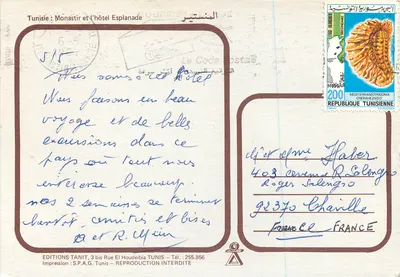 Tunisie : Monastir et l'hôtel Esplanade
المنستير
5/5
Nous sommes à cet hôtel
Nous faisons un beau
voyage et de belles
excursions dans ce
pays où tout nous
intéresse beaucoup.
nos 2 semaines se terminent
bientôt. amitiés et bises
et R.
EDITIONS TANIT, 3 bis Rue El Houdeibia TUNIS - Tél. : 255.956
Impression : S.P.A.G. Tunis - REPRODUCTION INTERDITE
Le Code Postal
200
REPUBLIQUE TUNISIENNE
Mr et Mme Haber
403 avenue R. Salengro
Roger Salengro
92370 Chaville
France FRANCE